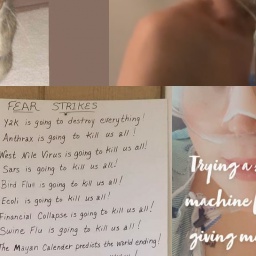 FEAR STRIKES
Y2K is going to destroy everything!
Anthrax is going to kill us all!
West Nile Virus is going to kill us all!
Sars is going to kill us all!
Bird Flu is going to kill us all!
Ecoli is going to kill us all!
Financial Collapse is going to kill us all!
Swine Flu is going to kill us all!
The Mayan Calender predicts the world ending!
Trying a
machine
giving m